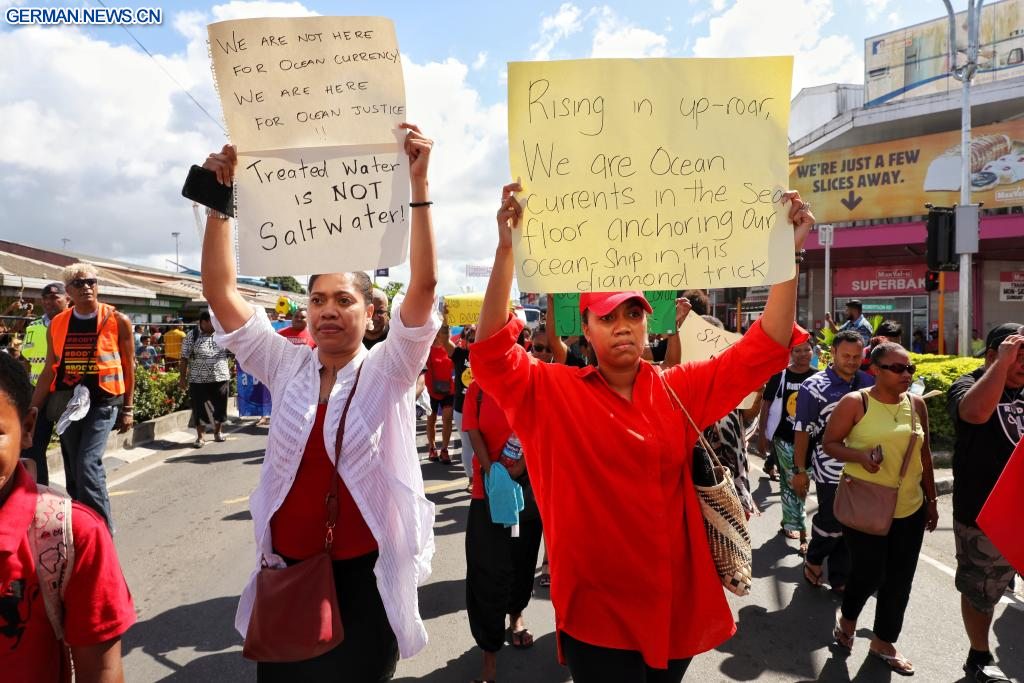 GERMAN.NEWS.CN
WE ARE NOT HERE
FOR OCEAN CURRENCY
WE ARE HERE
FOR OCEAN JUSTICE
!!
Treated Water
IS NOT
Salt Water!
Rising in up-roar,
We are Ocean
currents in the Sea
floor anchoring our
ocean-ship in this
diamond trick
WE'RE JUST A FEW
SLICES AWAY.
SUPERBAK